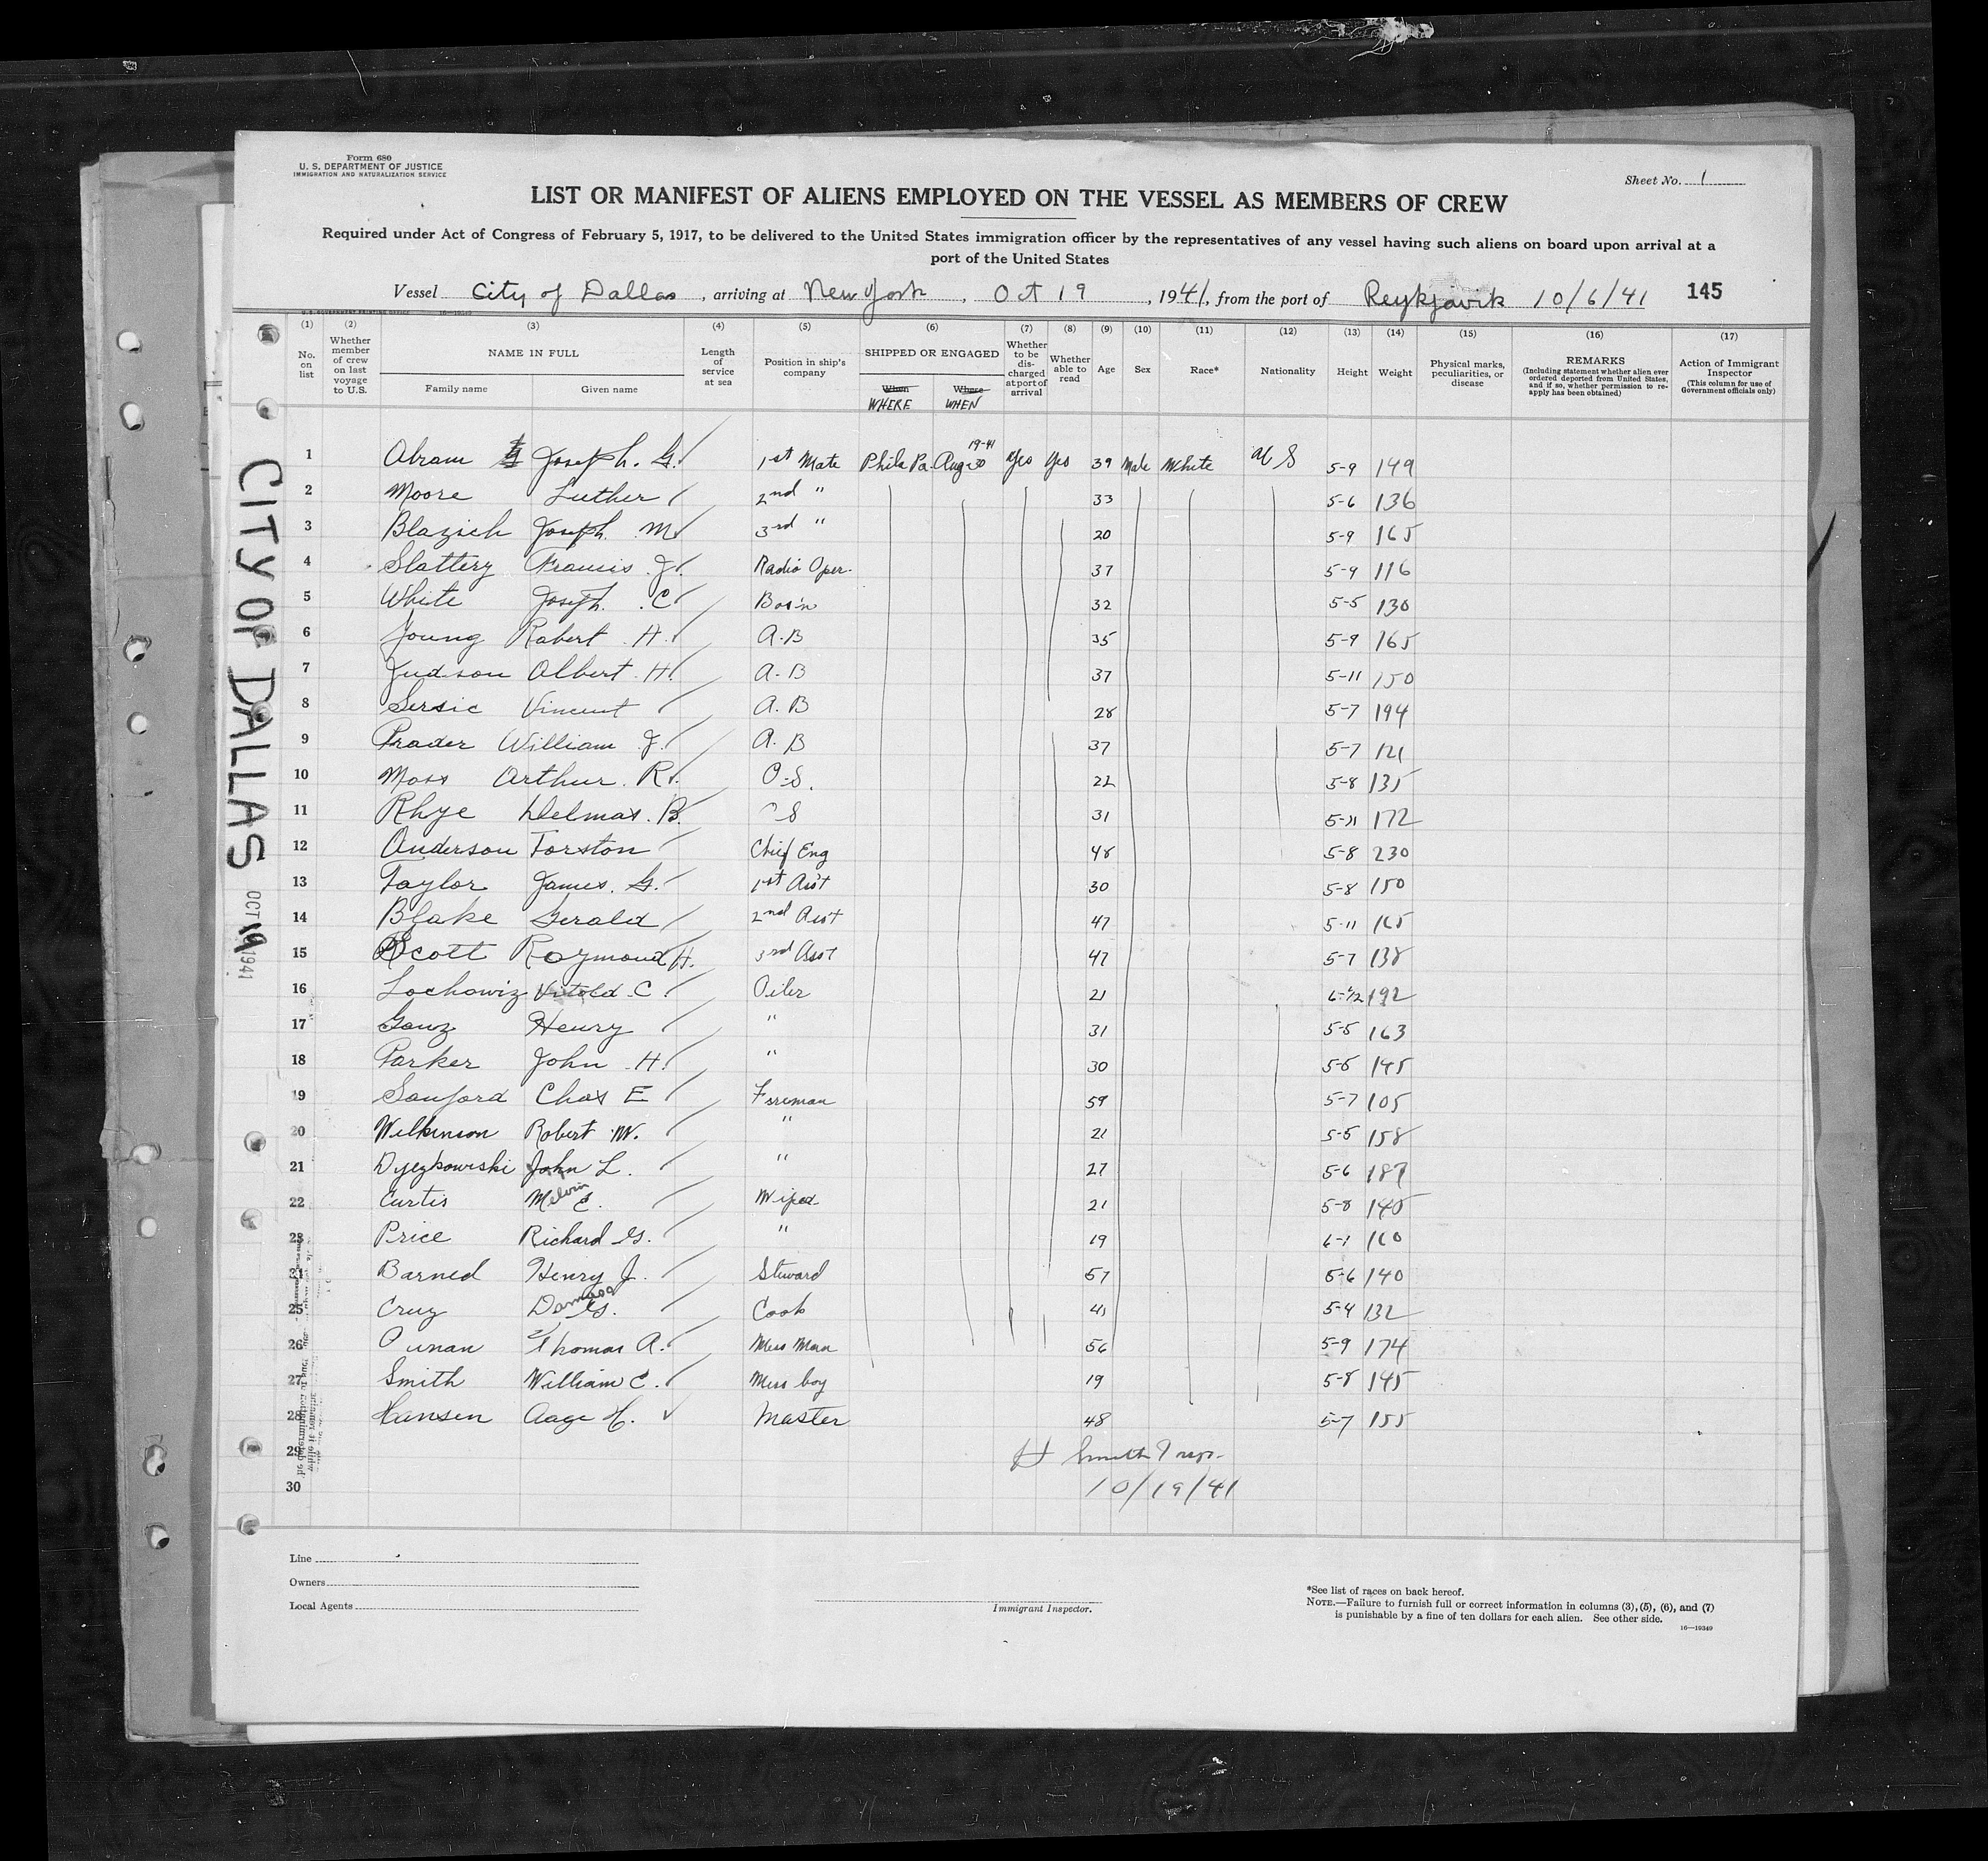 Form 680
U. S. DEPARTMENT OF JUSTICE
IMMIGRATION AND NATURALIZATION SERVICE
Sheet No. 1
LIST OR MANIFEST OF ALIENS EMPLOYED ON THE VESSEL AS MEMBERS OF CREW
Required under Act of Congress of February 5, 1917, to be delivered to the United States immigration officer by the representatives of any vessel having such aliens on board upon arrival at a
port of the United States
Vessel City of Dallas, arriving at New York, Oct 19, 1941, from the port of Reykjavik 10/6/41 145
(1) (2) (3) (4) (5) (6) (7) (8) (9) (10) (11) (12) (13) (14) (15) (16) (17)
No. on list
Whether member of crew on last voyage to U.S.
NAME IN FULL
Family name Given name
Length of service at sea
Position in ship's company
SHIPPED OR ENGAGED
When Where
WHERE WHEN
Whether to be discharged at port of arrival
Whether able to read
Age
Sex
Race*
Nationality
Height
Weight
Physical marks, peculiarities, or disease
REMARKS
(Including statement whether alien ever ordered deported from United States, and if so, whether permission to reapply has been obtained)
Action of Immigrant Inspector
(This column for use of Government officials only)
1 Abram Joseph. G. 1st Mate Phila Pa. Aug 30 19-41 Yes Yes 39 Male White U S 5-9 149
2 Moore Luther 2nd " 33 5-6 136
3 Blazich Joseph M 3rd " 20 5-9 165
4 Slattery Francis J. Radio Oper. 37 5-9 116
5 White Joseph C Bos'n 32 5-5 130
6 Young Robert H. A.B 35 5-9 165
7 Judson Albert H. A.B 37 5-11 150
8 Sersic Vincent A.B 28 5-7 194
9 Prader William J. A.B 37 5-7 121
10 Moss Arthur R. O.S. 22 5-8 135
11 Rhye Delmar B. S 31 5-11 172
12 Anderson Torston Chief Eng 48 5-8 230
13 Taylor James G. 1st Ass't 30 5-8 150
14 Blake Gerald 2nd Asst 47 5-11 165
15 Scott Raymond H. 3rd Asst 47 5-7 138
16 Lochowiz Vitold C Oiler 21 6-1/2 192
17 Ganz Henry " 31 5-5 163
18 Parker John H. " 30 5-5 145
19 Sanford Chas E Fireman 59 5-7 105
20 Wilkinson Robert W. " 21 5-5 158
21 Dyezkowski John L. " 27 5-6 187
22 Curtis Melvin E. Wiper 21 5-8 140
23 Price Richard G. " 19 6-1 160
24 Barned Henry J. Steward 57 5-6 140
25 Cruz Damaso G. Cook 41 5-4 132
26 unan Thomas A. Mess Man 56 5-9 174
27 Smith William C. Mess boy 19 5-8 145
28 Hansen Aage H. Master 48 5-7 155
29 H Smith Insp.
30 10/19/41
CITY OF DALLAS
OCT 19 1941
Line
Owners
Local Agents
Immigrant Inspector.
*See list of races on back hereof.
NOTE.—Failure to furnish full or correct information in columns (3), (5), (6), and (7)
is punishable by a fine of ten dollars for each alien. See other side.
16—19349